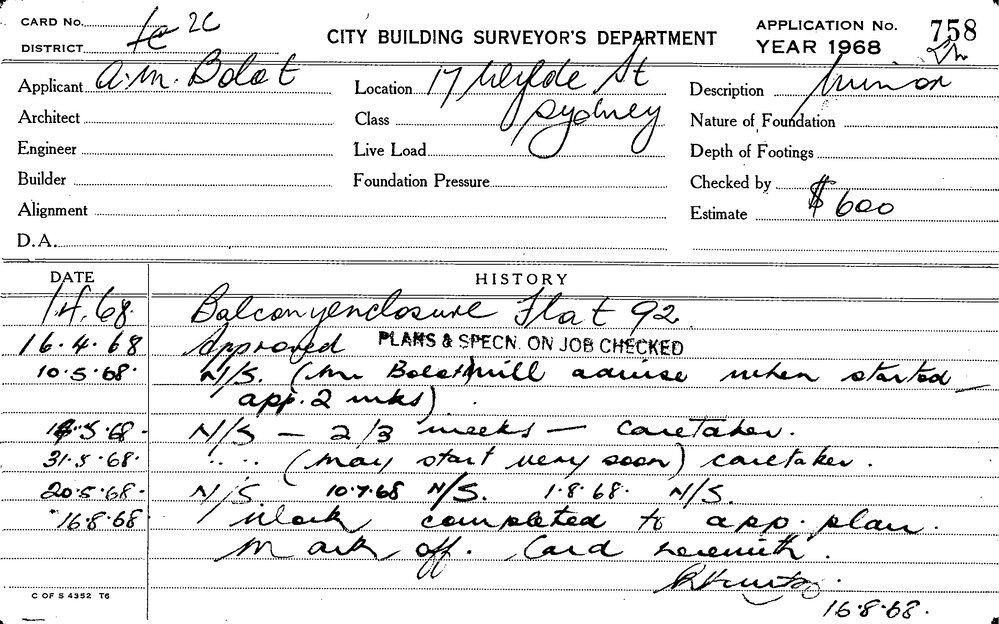 CARD No. 1a 2C
DISTRICT
CITY BUILDING SURVEYOR'S DEPARTMENT
APPLICATION No. 758
YEAR 1968
Applicant A.M. Bolot
Location 17 Wylde St
Description Minor
Architect
Class Sydney
Nature of Foundation
Engineer
Live Load
Depth of Footings
Builder
Foundation Pressure
Checked by
Alignment
Estimate $600
D.A.
DATE HISTORY
1.4.68. Balcony enclosure Flat 92
16.4.68 Approved PLANS & SPECN. ON JOB CHECKED
10.5.68. N/S. (Mr Bolot will advise when started –
app. 2 wks).
.5.68. N/S – 2/3 weeks – caretaker.
31.5.68. .. .. (may start very soon) caretaker.
20.5.68. N/S 10.7.68 N/S. 1.8.68. N/S.
16.8.68 Work completed to app. plan.
Mark off. Card herewith.
16.8.68.
C OF S 4352 T6